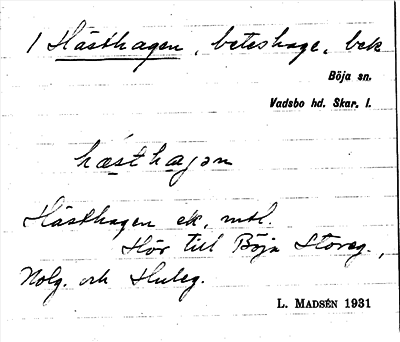 1 Hästhagen, beteshage, bek
Böja sn.
Vadsbo hd. Skar. l.
hästhagən
Hästhagen ek, mtl.
Hör till Böja Storeg.,
Nolg. och Huleg.
L. MADSÉN 1931